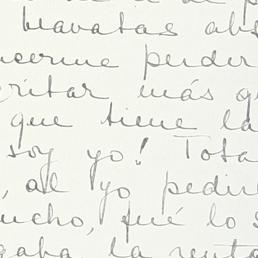 bravatas abs
acerme perder
gritar más q
que tiene la
soy yo! Tota
, al yo pedir
ucho, ¡qué lo s
gaba la renta